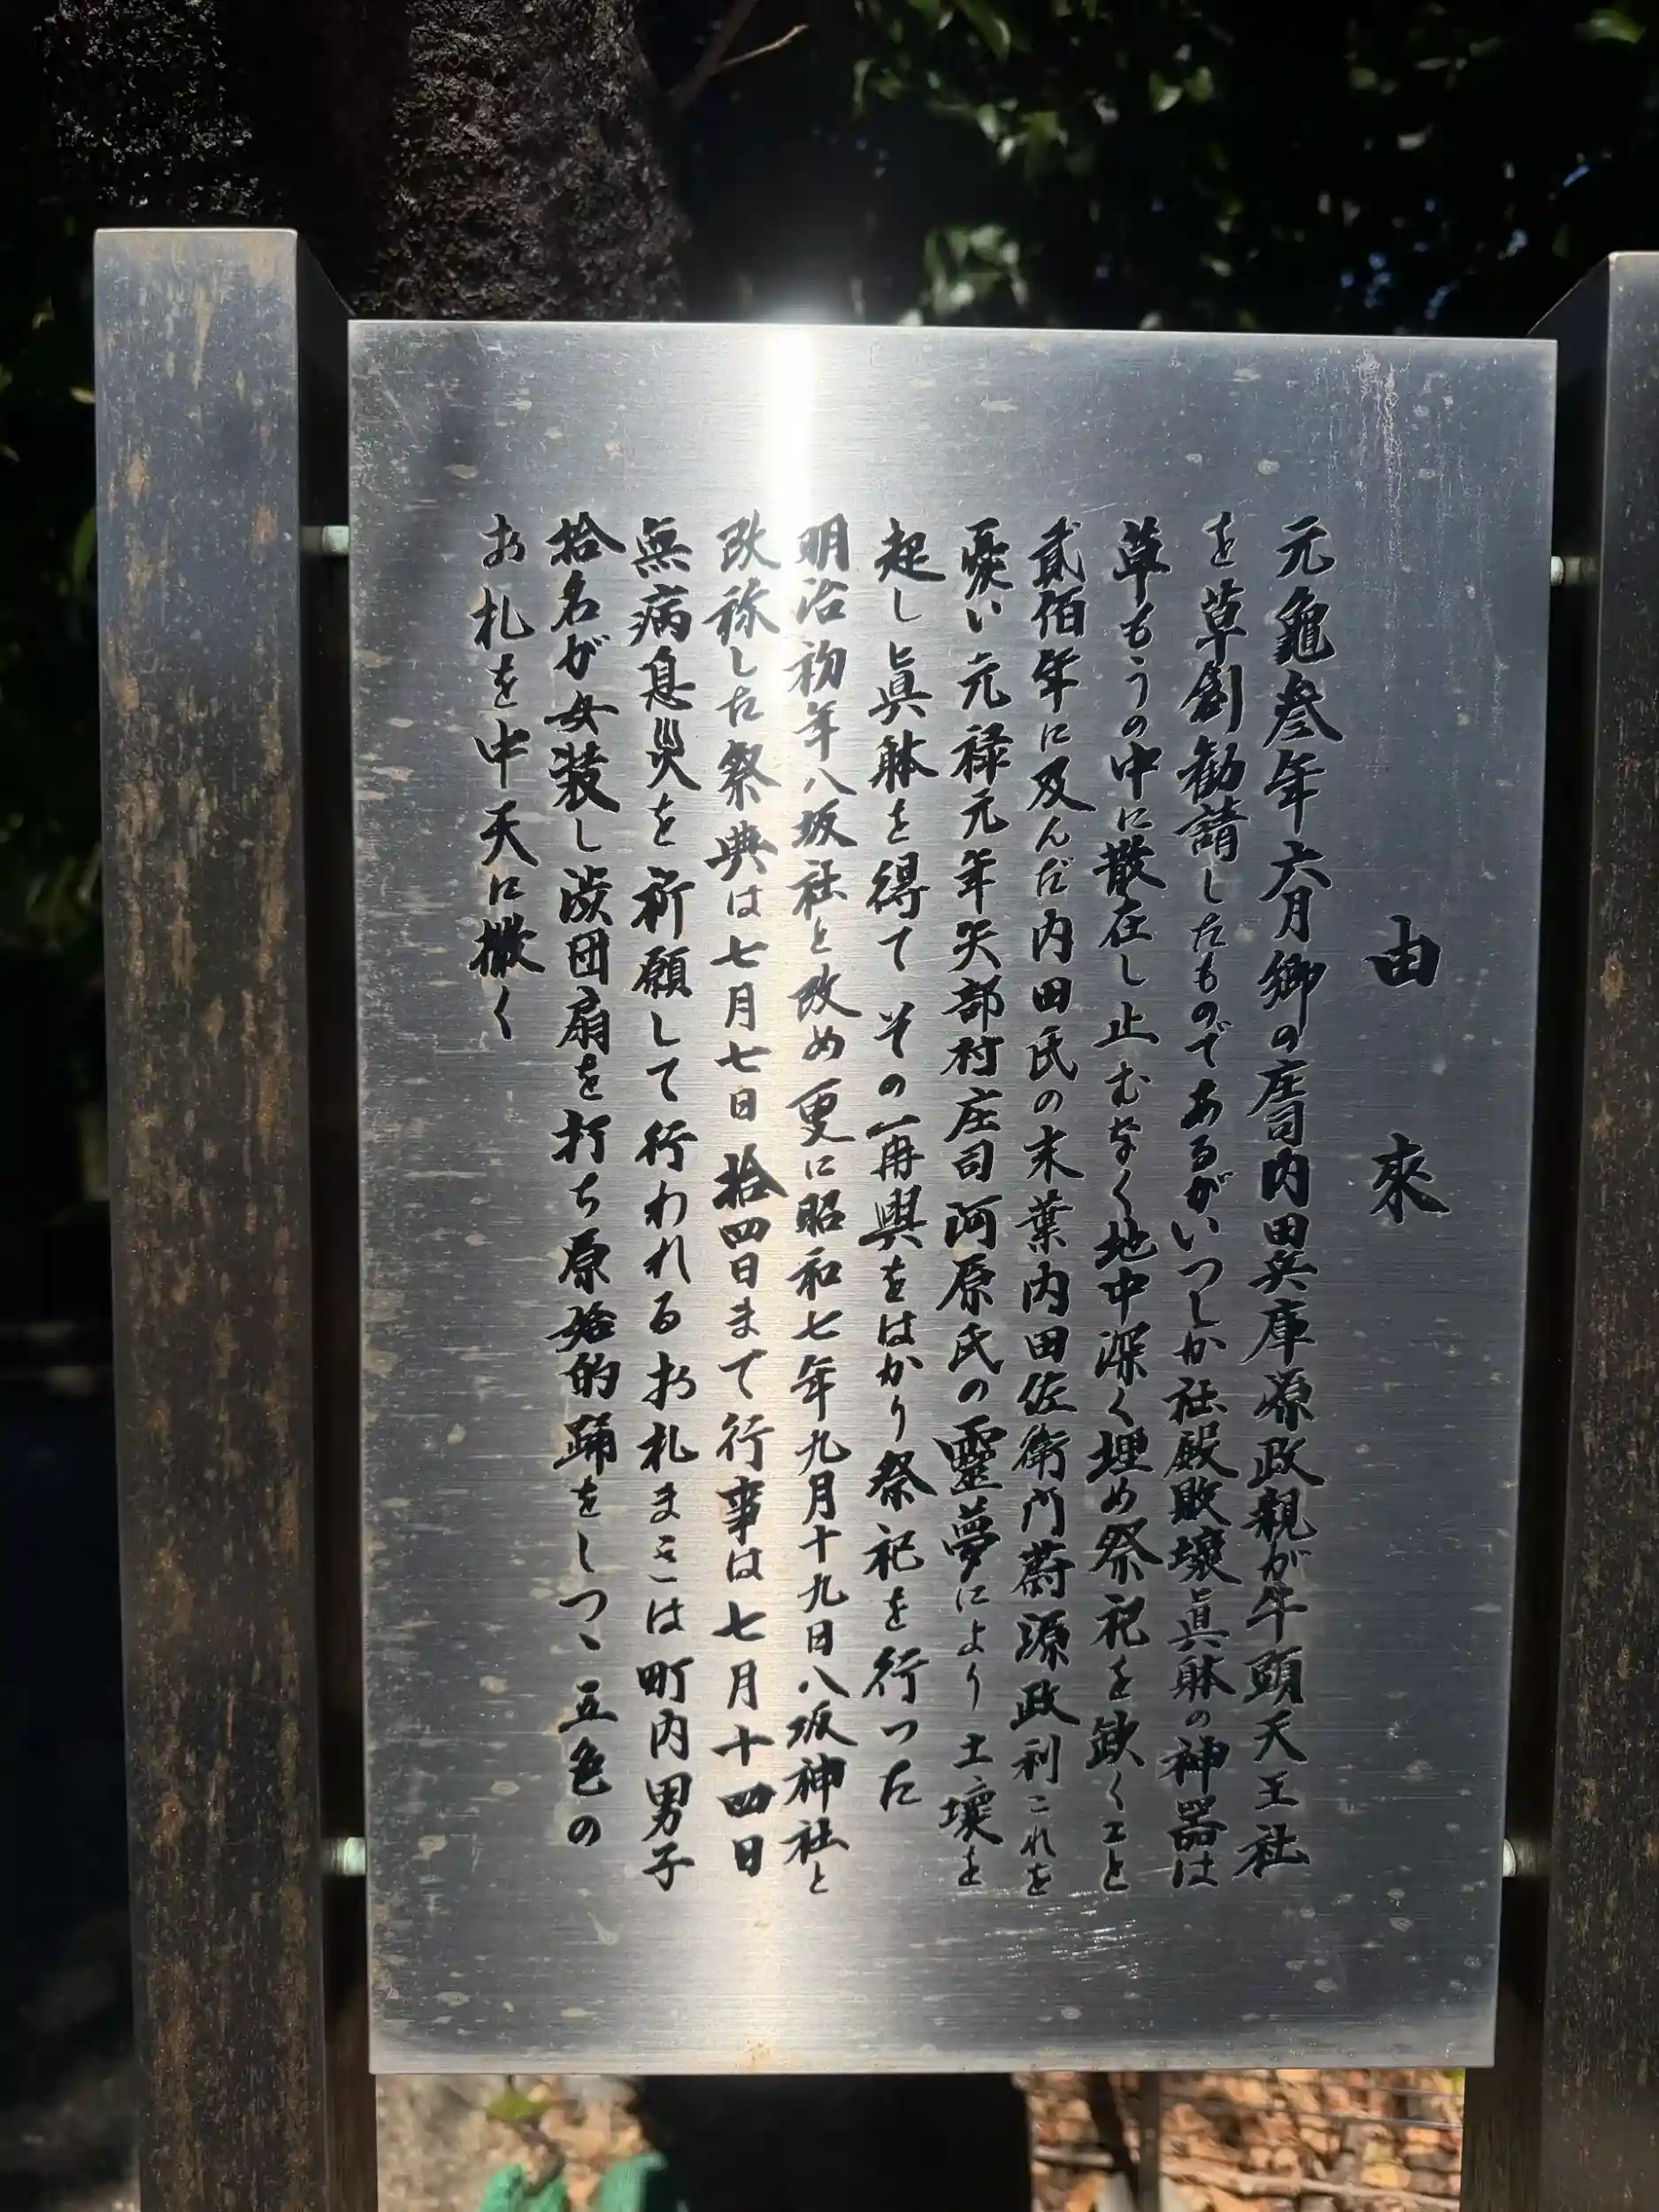 由来
元龜叄年六月郷の庄司内田兵庫源政親が牛頭天王社
を草創勧請したものであるがいつしか社殿敗壞眞躰の神器は
草もうの中に散在し止むなく地中深く埋め祭祀を欽くこと
貳佰年に及んだ内田氏の末葉内田佐衛門蔚源政利これを
憂い元禄元年矢部村庄司河原氏の靈夢により土壞を
起し眞躰を得てその再興をはかり祭祀を行つた
明治初年八坂社と改め更に昭和七年九月十九日八坂神社と
改称した祭典は七月七日拾四日まで行事は七月十四日
無病息災を祈願して行われるお札まきは町内男子
拾名が女装し渋団扇を打ち原始的踊をしつゝ五色の
お札を中天に撒く